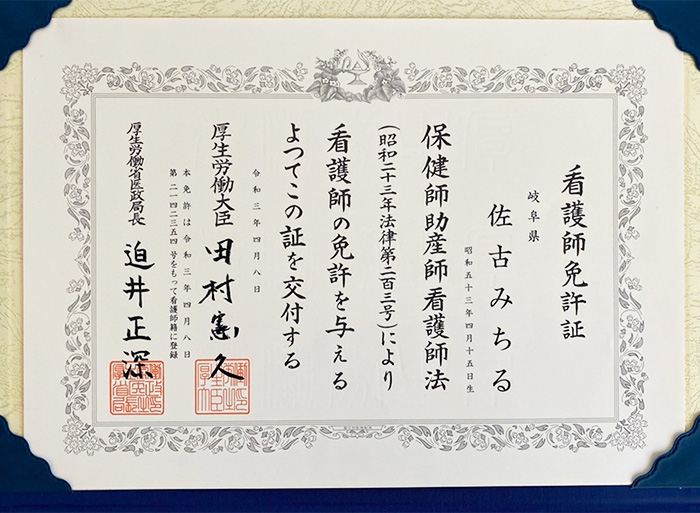 看護師免許証
岐阜県
佐古みちる
昭和五十三年四月十五日生
保健師助産師看護師法
(昭和二十三年法律第二百三号)により
看護師の免許を与える
よつてこの証を交付する
令和三年四月八日
厚生労働大臣 田村憲久
本免許は令和三年四月八日
第二一四二三五四号をもって看護師籍に登録
厚生労働省医政局長 迫井正深